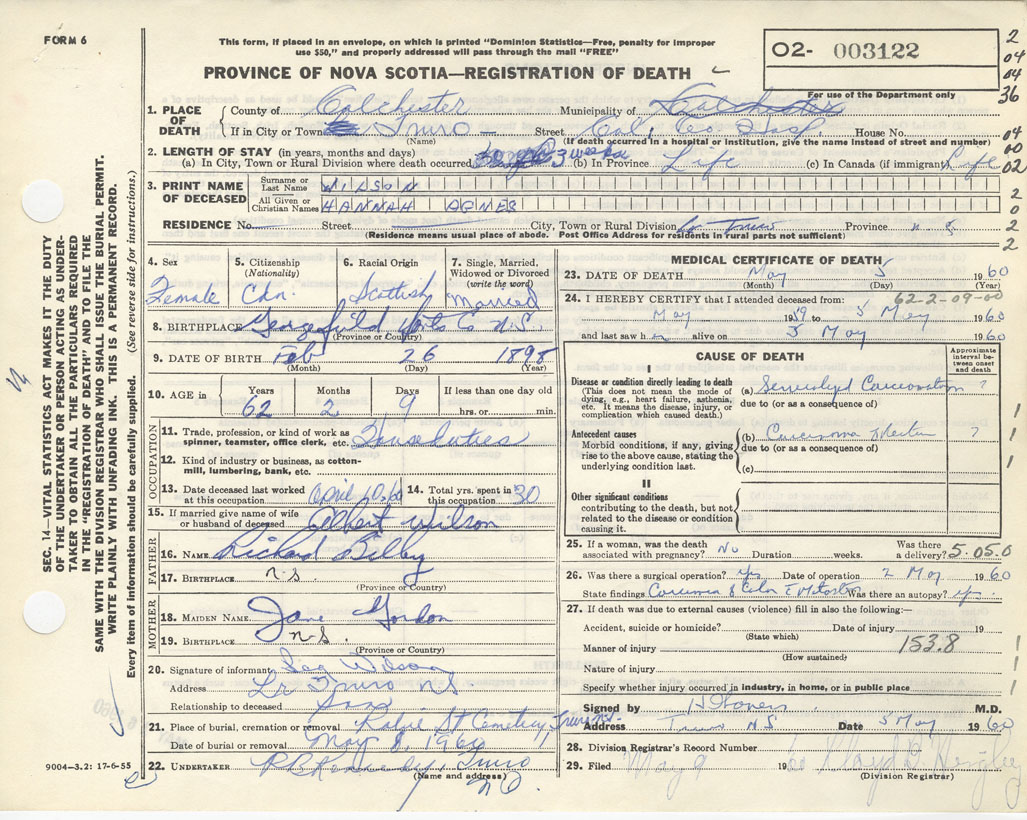 FORM 6
This form, if placed in an envelope, on which is printed "Dominion Statistics—Free, penalty for improper
use $50," and properly addressed will pass through the mail "FREE"
PROVINCE OF NOVA SCOTIA—REGISTRATION OF DEATH
02- 003122
For use of the Department only
2
04
04
36
04
04
02
2
0
2
2
1. PLACE OF DEATH
County of Colchester Municipality of Colchester
If in City or Town Truro Street Col. Co Hosp. House No.
(Name) (If death occurred in a hospital or Institution, give the name instead of street and number)
2. LENGTH OF STAY (in years, months and days)
(a) In City, Town or Rural Division where death occurred 3 weeks (b) In Province Life (c) In Canada (if immigrant) Life
3. PRINT NAME OF DECEASED
Surname or Last Name WILSON
All Given or Christian Names HANNAH AGNES
RESIDENCE No. Street City, Town or Rural Division Lr Truro Province N.S.
(Residence means usual place of abode. Post Office Address for residents in rural parts not sufficient)
4. Sex Female
5. Citizenship (Nationality) Cdn.
6. Racial Origin Scottish
7. Single, Married, Widowed or Divorced (write the word) Married
8. BIRTHPLACE Georgefield Hants Co N.S.
(Province or Country)
9. DATE OF BIRTH Feb 26 1898
(Month) (Day) (Year)
10. AGE in Years 62 Months 2 Days 9 If less than one day old hrs. or min.
OCCUPATION
11. Trade, profession, or kind of work as spinner, teamster, office clerk, etc. House duties
12. Kind of industry or business, as cotton-mill, lumbering, bank, etc.
13. Date deceased last worked at this occupation April 10,60
14. Total yrs. spent in this occupation 30
15. If married give name of wife or husband of deceased Elbert Wilson
FATHER
16. NAME Richard Bilby
17. BIRTHPLACE N.S.
(Province or Country)
MOTHER
18. MAIDEN NAME Jane Gordon
19. BIRTHPLACE N.S.
(Province or Country)
20. Signature of informant Wilson
Address Lr Truro N.S.
Relationship to deceased Son
21. Place of burial, cremation or removal Robie St Cemetery Truro N.S.
Date of burial or removal May 8, 1960
22. UNDERTAKER Truro
(Name and address) N.S.
MEDICAL CERTIFICATE OF DEATH
23. DATE OF DEATH May 5 1960
(Month) (Day) (Year)
62-2-09-00
24. I HEREBY CERTIFY that I attended deceased from:
May 1919 to 5 May 1960
and last saw h alive on 5 May 1960
CAUSE OF DEATH
Approximate interval between onset and death
I
Disease or condition directly leading to death
(This does not mean the mode of dying, e.g., heart failure, asthenia, etc. It means the disease, injury, or complication which caused death.)
(a) Carcinomatosis ?
due to (or as a consequence of)
Antecedent causes
Morbid conditions, if any, giving rise to the above cause, stating the underlying condition last.
(b) Carcinoma ?
due to (or as a consequence of)
(c)
II
Other significant conditions
contributing to the death, but not related to the disease or condition causing it.
25. If a woman, was the death associated with pregnancy? No Duration weeks. Was there a delivery? 5.05.0
26. Was there a surgical operation? yes Date of operation 2 May 1960
State findings Carcinoma of Colon Was there an autopsy? yes.
27. If death was due to external causes (violence) fill in also the following:—
Accident, suicide or homicide? Date of injury 19
(State which)
Manner of injury 153.8
(How sustained)
Nature of injury
Specify whether injury occurred in industry, in home, or in public place
Signed by M.D.
Address Truro N.S. Date 5 May 1960
28. Division Registrar's Record Number
29. Filed May 9 1960 Lloyd
(Division Registrar)
SEC. 14—VITAL STATISTICS ACT MAKES IT THE DUTY
OF THE UNDERTAKER OR PERSON ACTING AS UNDER-
TAKER TO OBTAIN ALL THE PARTICULARS REQUIRED
IN THE "REGISTRATION OF DEATH" AND TO FILE THE
SAME WITH THE DIVISION REGISTRAR WHO SHALL ISSUE THE BURIAL PERMIT.
WRITE PLAINLY WITH UNFADING INK. THIS IS A PERMANENT RECORD.
Every item of information should be carefully supplied. (See reverse side for instructions.)
9004-3.2: 17-6-55